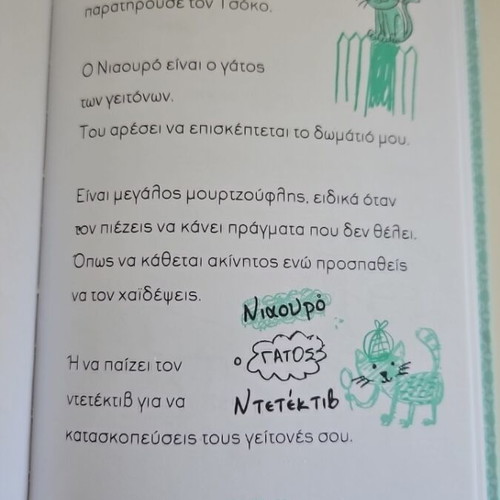 παρατηρούσε τον Τσόκο.
Ο Νιαουρό είναι ο γάτος
των γειτόνων.
Του αρέσει να επισκέπτεται το δωμάτιό μου.
Είναι μεγάλος μουρτζούφλης, ειδικά όταν
τον πιέζεις να κάνει πράγματα που δεν θέλει.
Όπως να κάθεται ακίνητος ενώ προσπαθείς
να τον χαϊδέψεις.
Νιαουρό
ο ΓΑΤΟΣ
Ντετέκτιβ
Ή να παίζει τον
ντετέκτιβ για να
κατασκοπεύσεις τους γείτονές σου.